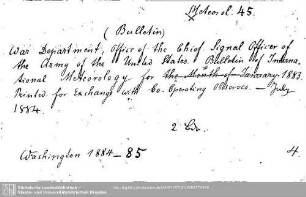 Meteorol. 45.
(Bulletin)
War Department, Office of the Chief Signal Officer of
the Army of the United States. Bulletin of Interna
tional Meteorology for the Month of January 1883.
Printed for Exchange with Co-Operating Observers. — July
1884.
2 Bde.
Washington 1884–85
4.